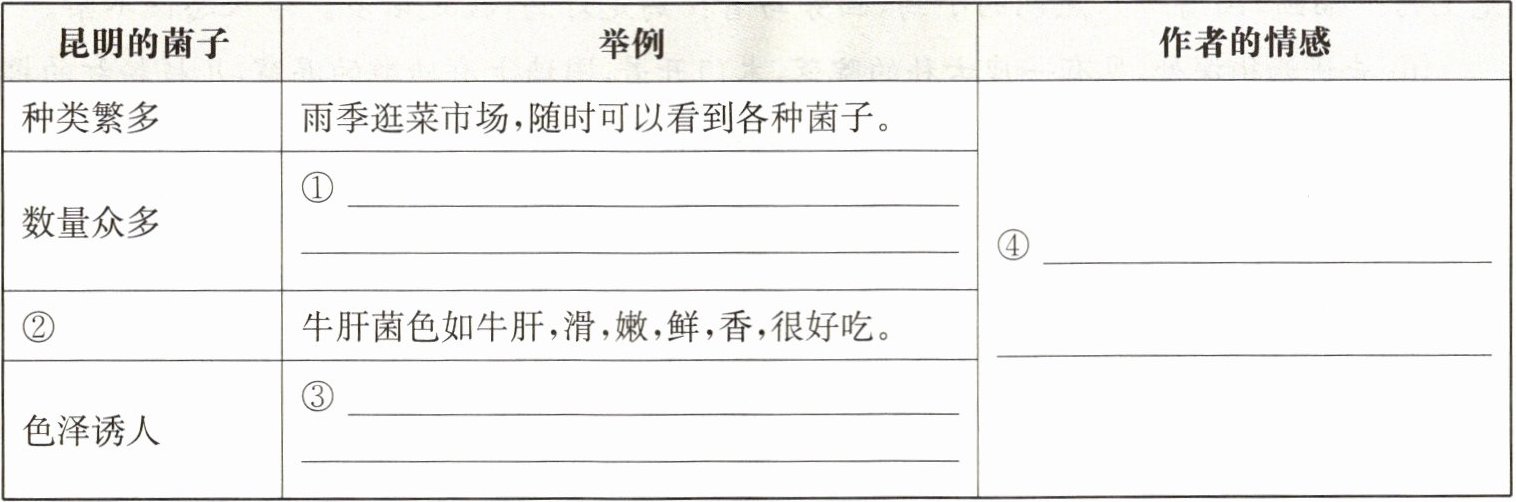 昆明的菌子 举例 作者的情感
种类繁多 雨季逛菜市场,随时可以看到各种菌子。
数量众多 ①
④
② 牛肝菌色如牛肝,滑,嫩,鲜,香,很好吃。
色泽诱人 ③